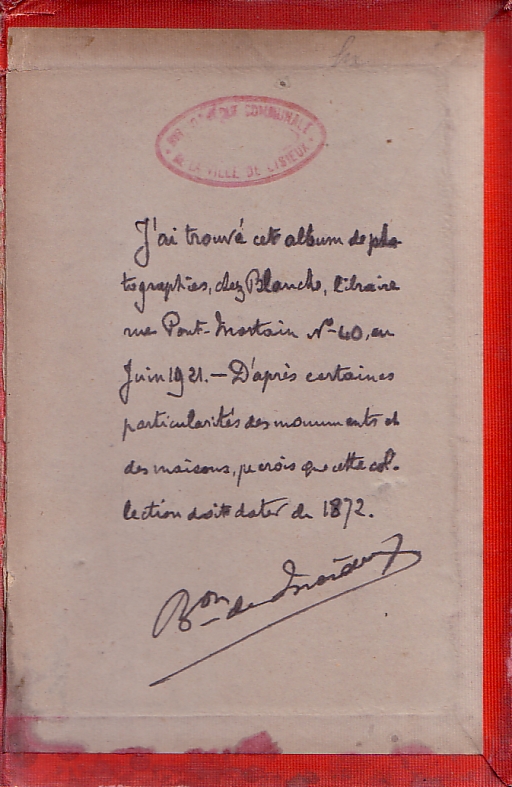 BIBLIOTHÈQUE COMMUNALE
DE LA VILLE DE LISIEUX
J'ai trouvé cet album de pho-
tographies, chez Blanche, libraire
rue Pont-Mortain N° 40, en
Juin 1921. — D'après certaines
particularités des monuments et
des maisons, je crois que cette col-
lection doit dater de 1872.
Bon de Moidrey